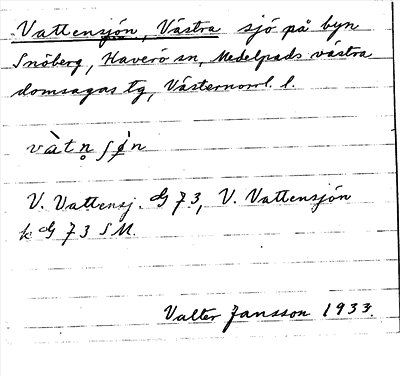 Vattensjön, Västra sjö på byn
Snöberg, Haverö sn, Medelpads västra
domsagas tg, Västernorrl. l.
vàtn̥ ʃø̀n
V. Vattensj. G 73, V. Vattensjön
k G 73 SM.
Valter Jansson 1933.